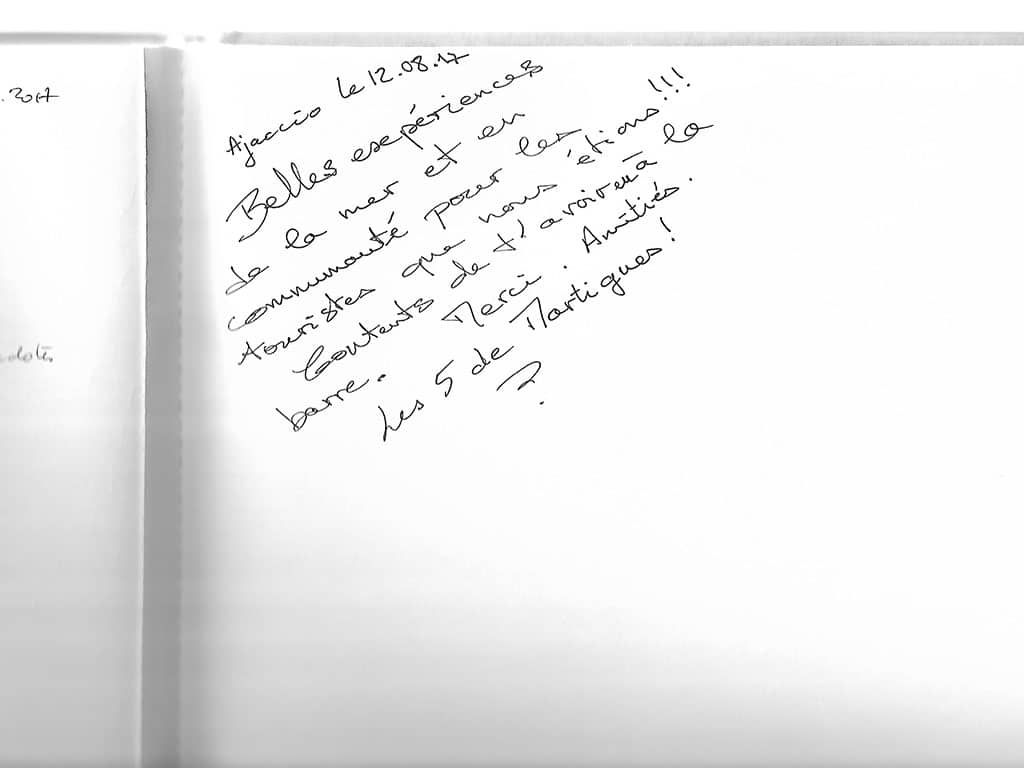 . 2017
dote.
Ajaccio le 12.08.17
Belles expériences
de la mer et en
communauté pour les
touristes que nous étions!!!
Contents de t'avoir eu à la
barre. Merci. Amitiés.
Les 5 de Martigues!